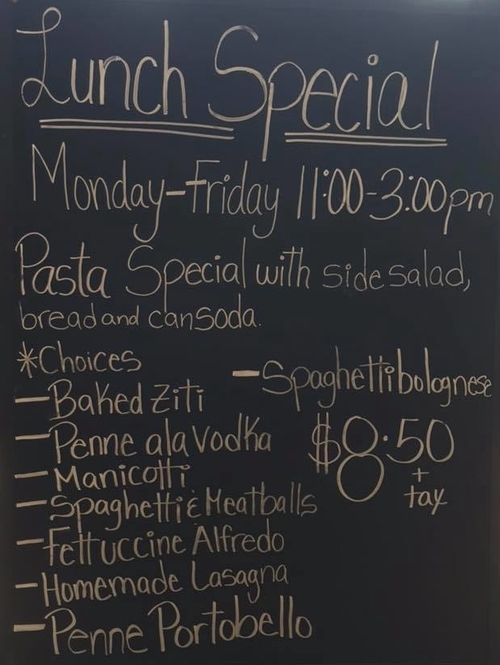 Lunch Special
Monday-Friday 11:00-3:00pm
Pasta Special with side salad,
bread and can Soda.
*Choices
- Baked Ziti
- Penne ala Vodka
- Manicotti
- Spaghetti & Meatballs
- Fettuccine Alfredo
- Homemade Lasagna
- Penne Portobello
- Spaghetti bolognese
$8.50
+
tax